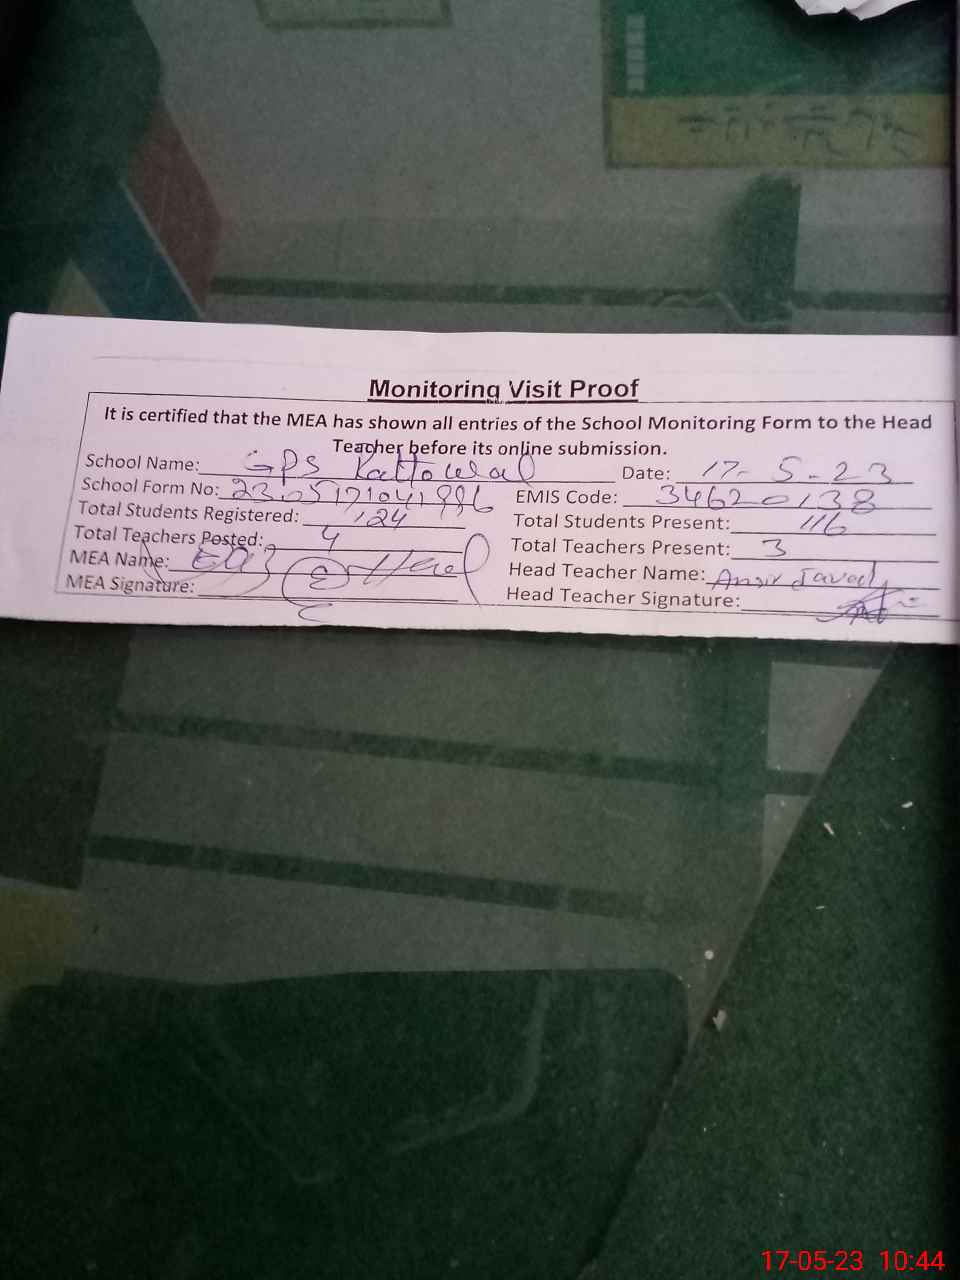 Monitoring Visit Proof
It is certified that the MEA has shown all entries of the School Monitoring Form to the Head
Teacher before its online submission.
School Name: GPS Kattowal Date: 17-5-23
School Form No: EMIS Code: 34620138
Total Students Registered: 124 Total Students Present: 116
Total Teachers Posted: 4 Total Teachers Present: 3
MEA Name: Head Teacher Name: Javed
MEA Signature: Head Teacher Signature:
17-05-23 10:44